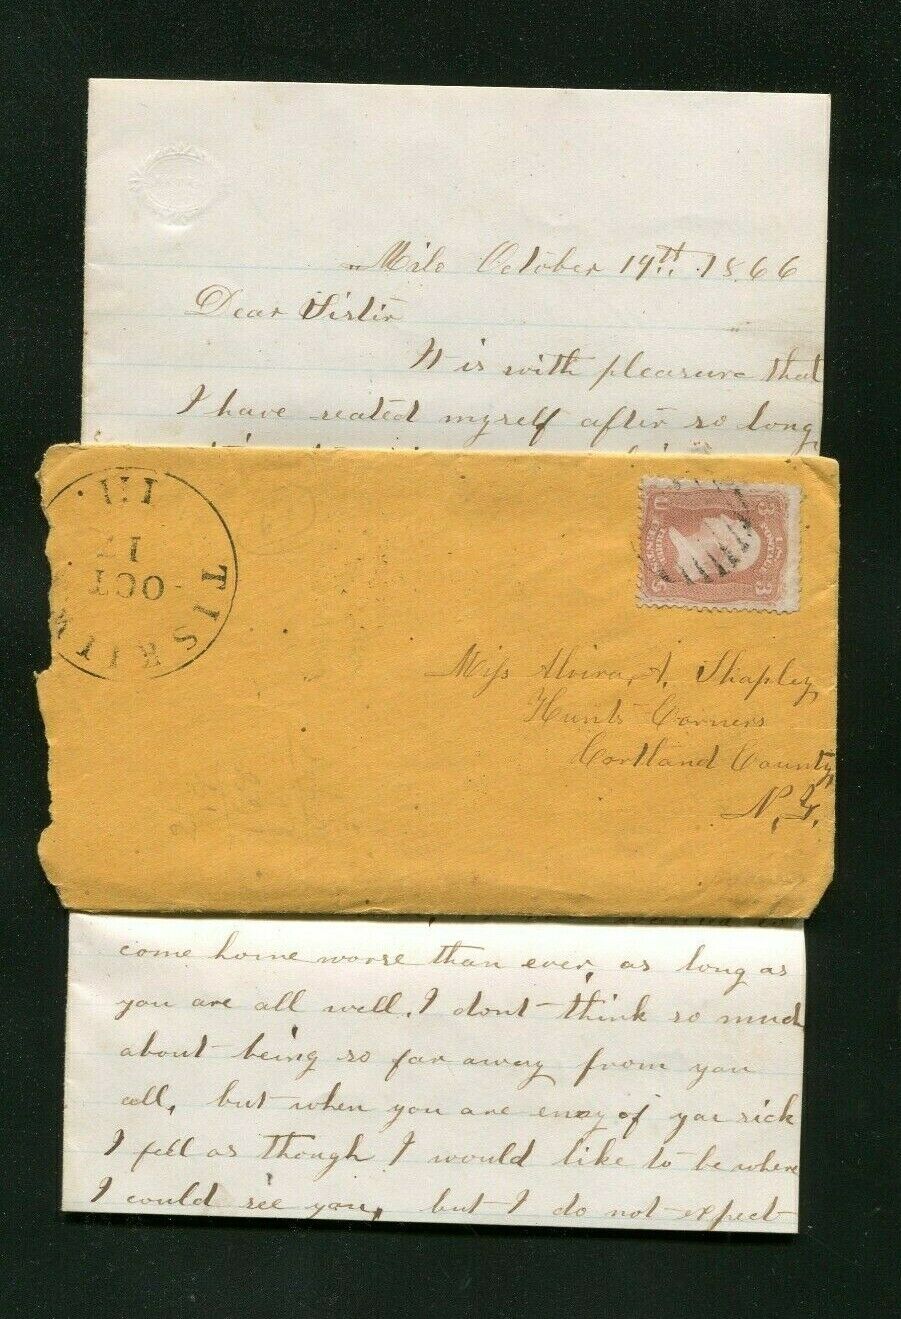 Milo October 19th. 1866
Dear Sister
It is with pleasure that
I have seated myself after so long
TISKILWA ILL.
OCT
17
U.S. POSTAGE
3 3
UNITED STATES
Miss Alvira, A. Shapley
Hunts Corners
Cortland County
N.Y.
come home worse than ever, as long as
you are all well. I dont think so much
about being so far away from you
all, but when you are eney of you sick
I fell as though I would like to be where
I could see you, but I do not expect